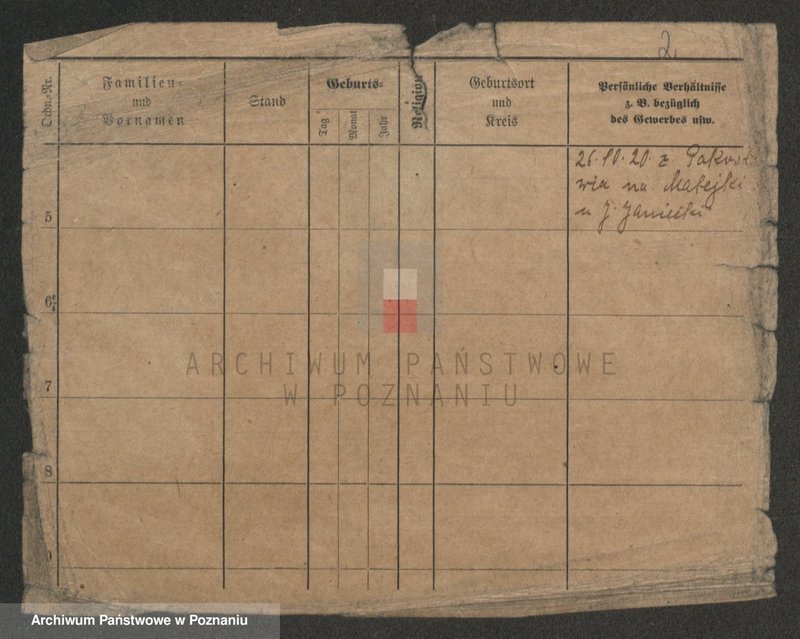 2.
Ordn.-Nr.
Familien-
und
Vornamen
Stand
Geburts-
Tag
Monat
Jahr
Religion
Geburtsort
und
Kreis
Persönliche Verhältnisse
z. B. bezüglich
des Gewerbes usw.
26.10.20. z
na Matejki
u J. Janiecki
5
6
7
8
ARCHIWUM PAŃSTWOWE
W POZNANIU
Archiwum Państwowe w Poznaniu